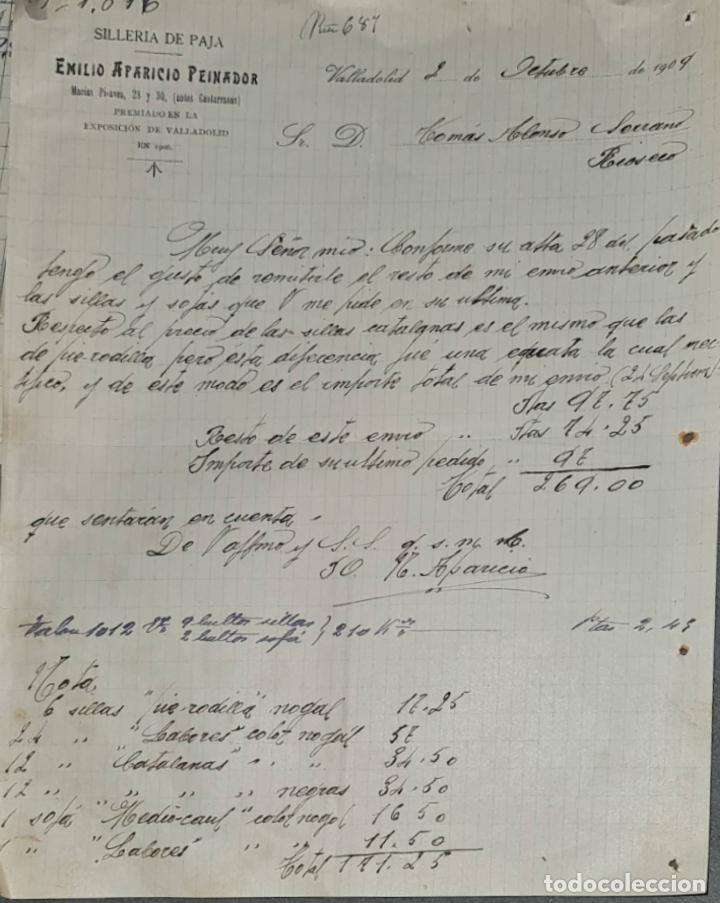 1-1,016
Núm 687
SILLERIA DE PAJA
EMILIO APARICIO PEINADOR
Macías Picavea, 28 y 30, (antes Cantarranas)
PREMIADO EN LA
EXPOSICIÓN DE VALLADOLID
EN 1906.
Valladolid 2 de Octubre de 1909
Sr. D. Tomás Alonso Serrano
Rioseco
Muy Señor mio: Conforme su atta 28 del pasado
tengo el gusto de remitirle el resto de mi envio anterior y
las sillas y sofás que V me pide en su ultima.
Respecto al precio de las sillas catalanas es el mismo que las
de pie-rodilla pero esta diferencia fué una equata la cual rec-
tifico, y de este modo es el importe total de mi envio (24 Septiem)
Ptas 97.75
Resto de este envio " Ptas 74.25
Importe de su ultimo pedido " 97
Total 269.00
que sentarán en cuenta.
De V affmo y S.S. q. s. m. b.
P.O. Aparicio
Valon 1012 9 bultos sillas
2 bultos sofá } 210 Kos Ptas 2,43
Nota
6 sillas "pie-rodilla" nogal 17.25
24 " "Labores" color nogal 57
12 " "Catalanas" " " 34.50
12 " " " negras 34.50
1 sofá "Medio-caul" color nogal 16 50
1 " "Labores" " " 11.50
Total 171.25
todocoleccion